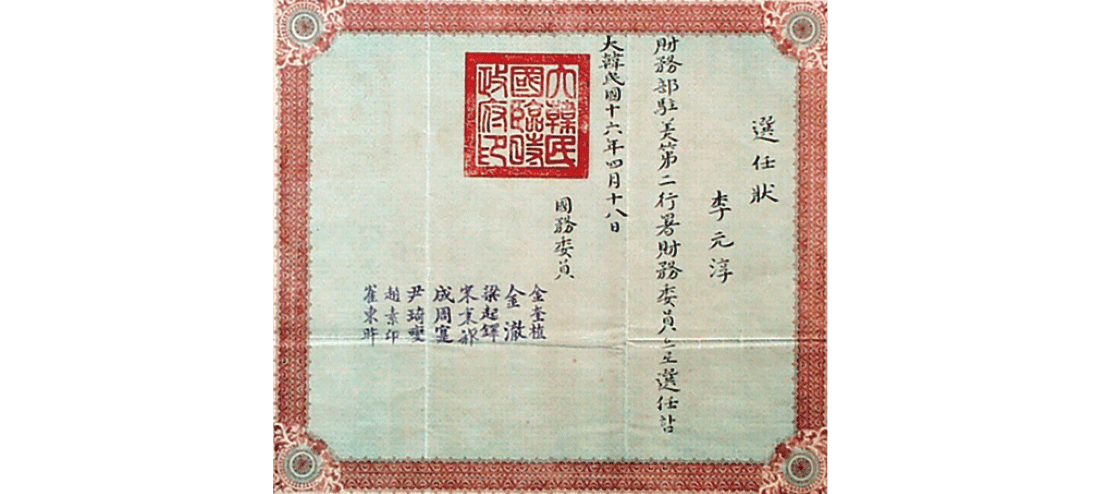 選任狀
李元淳
財務部駐美第二行署財務委員으로選任함
大韓民國十六年四月十八日
大韓民
國臨時
政府印
國務委員
金奎植
金澈
梁起鐸
宋秉祚
成周寔
尹琦燮
趙素卬
崔東旿